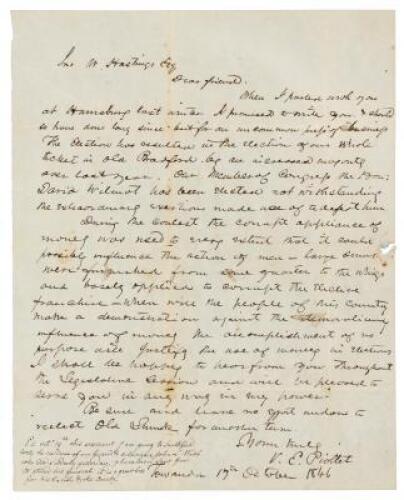 Jno W. Hastings Esq
Dear friend.
When I parted with you
at Harrisburg last winter I promised to write you & should
so have done long since but for an uncommon press of business
The Election has resulted in the election of our whole
ticket in Old Bradford by an increased majority
over last year. Our Member of Congress the Hon:
David Wilmot has been elected notwithstanding
the extraordinary exertions made use of to defeat him
During the contest the corrupt appliance of
money was used to every extent that it could
possibly influence the action of men - large sums
were furnished from some quarter to the Whigs
and basely applied to corrupt the elective
franchise - When will the people of this County
make a demonstration against the demoralizing
influence of money the accomplishment of no
purpose will justify the use of money in elections
I shall be happy to hear from you throughout
the Legislative Session and will be pleased to
serve you in any way in my power.
Be sure and leave no effort undone to
reelect Old Shunk for another term.
Yours truly
V. E. Piollet
Towanda 17th October 1846